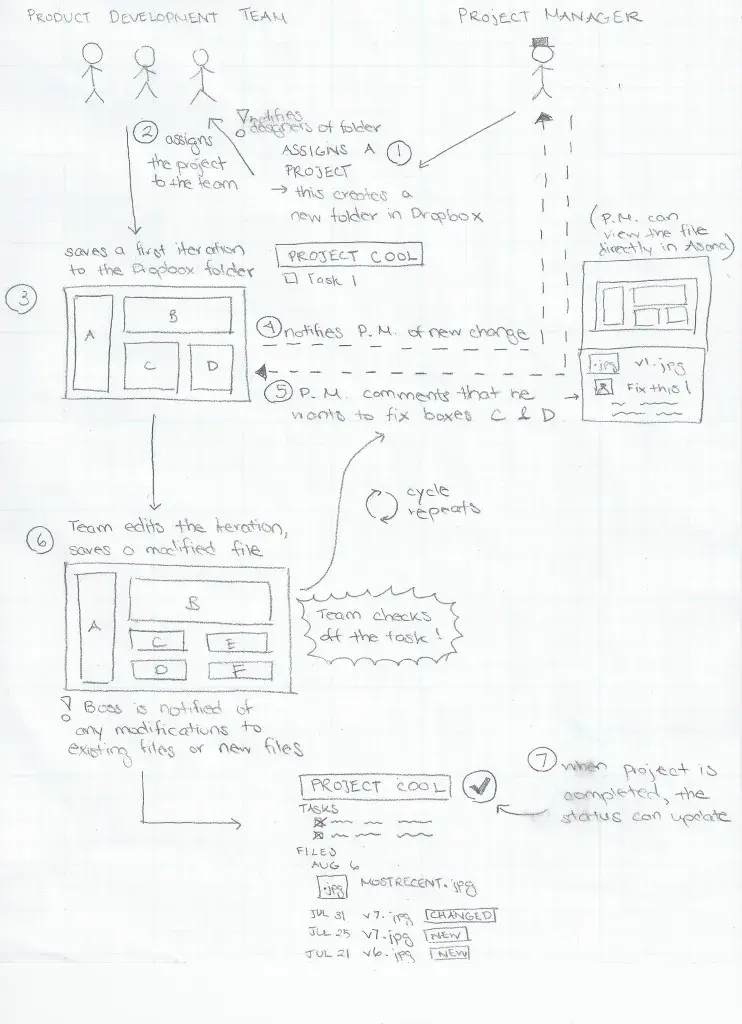 PRODUCT DEVELOPMENT TEAM
PROJECT MANAGER
! notifies
designers of folder
ASSIGNS A ①
PROJECT
→ this creates a
new folder in Dropbox
② assigns
the project
to the team
(P.M. can
view the file
directly in Asana)
saves a first iteration
to the Dropbox folder
PROJECT COOL
☐ Task 1
③
A
B
C
D
④ notifies P.M. of new change
.jpg v1.jpg
Fix this!
⑤ P.M. comments that he
wants to fix boxes C & D
cycle
repeats
⑥ Team edits the iteration,
saves a modified file
A
B
C
E
D
F
Team checks
off the task!
! Boss is notified of
any modifications to
existing files or new files
⑦ when project is
completed, the
status can update
PROJECT COOL ✓
TASKS
FILES
AUG 6
.jpg MOSTRECENT.jpg
JUL 31 v7.jpg CHANGED
JUL 25 v7.jpg NEW
JUL 21 v6.jpg NEW